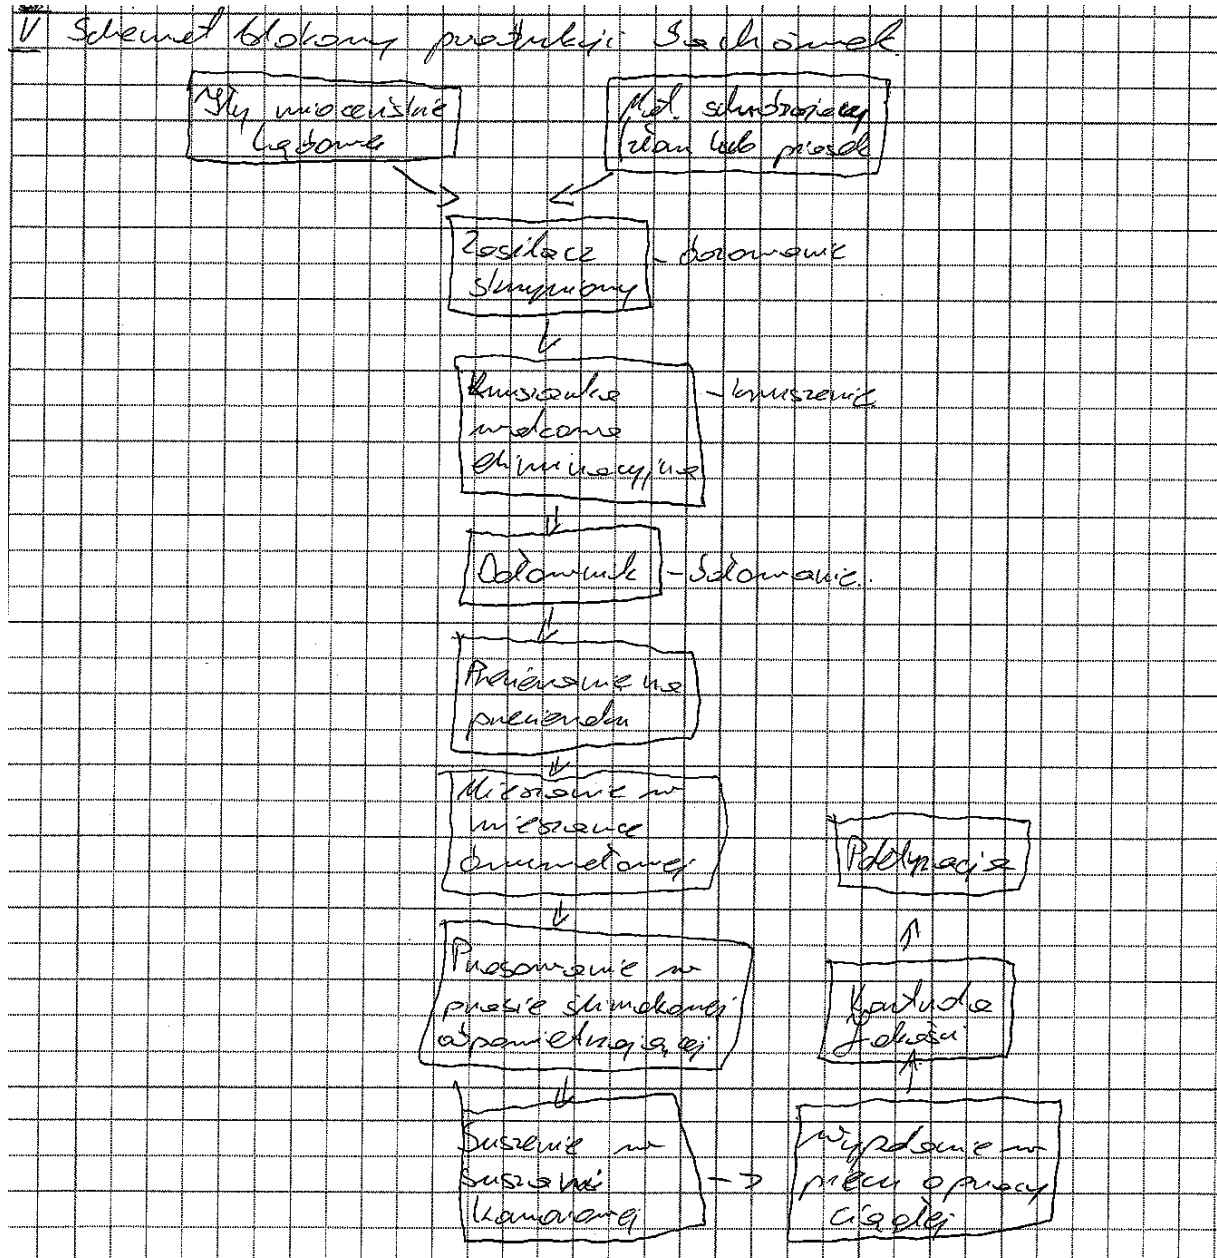 V Schemat blokowy produkcji dachówek
Iły mioceńskie
Lądowe
Mat. schudzający
(złom lub piasek
Zasilacz
skrzyniowy
- dozowanie
Kruszarka
walcowa
eliminacyjna
- kruszenie
Dołownik
- dołowanie.
Przecieranie na
przecieraku
Mieszanie w
mieszarce
dwuwałowej
Prasowanie w
prasie ślimakowej
odpowietrzającej
Suszenie w
suszarni
komorowej
Wypalanie w
piecu o pracy
ciągłej
Kontrola
Jakości
Paletyzacja